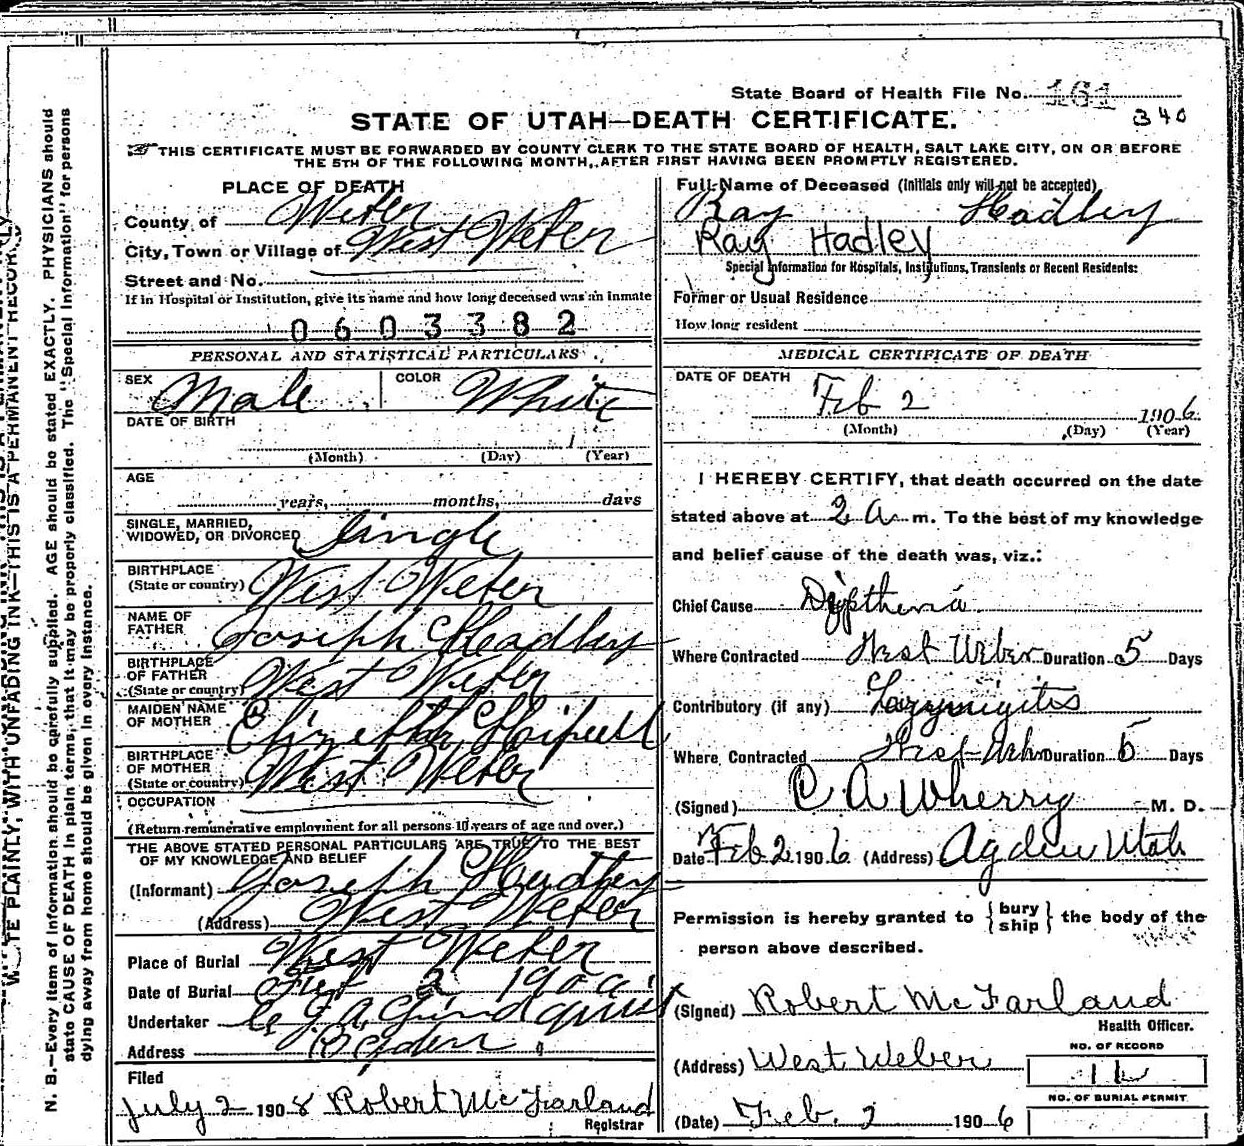 State Board of Health File No. 161
340
STATE OF UTAH—DEATH CERTIFICATE.
THIS CERTIFICATE MUST BE FORWARDED BY COUNTY CLERK TO THE STATE BOARD OF HEALTH, SALT LAKE CITY, ON OR BEFORE
THE 5TH OF THE FOLLOWING MONTH, AFTER FIRST HAVING BEEN PROMPTLY REGISTERED.
PLACE OF DEATH
County of Weber
City, Town or Village of West Weber
Street and No.
If in Hospital or Institution, give its name and how long deceased was an inmate
0603382
PERSONAL AND STATISTICAL PARTICULARS
SEX Male COLOR White
DATE OF BIRTH
1
(Month) (Day) (Year)
AGE
years, months, days
SINGLE, MARRIED,
WIDOWED, OR DIVORCED Single
BIRTHPLACE
(State or country) West Weber
NAME OF
FATHER Joseph Hadley
BIRTHPLACE
OF FATHER
(State or country) West Weber
MAIDEN NAME
OF MOTHER Elizabeth
BIRTHPLACE
OF MOTHER
(State or country) West Weber
OCCUPATION
(Return remunerative employment for all persons 10 years of age and over.)
THE ABOVE STATED PERSONAL PARTICULARS ARE TRUE TO THE BEST
OF MY KNOWLEDGE AND BELIEF
(Informant) Joseph Hadley
(Address) West Weber
Place of Burial West Weber
Date of Burial 2 190
Undertaker
Address Ogden
Filed
July 2 1908 Robert McFarland
Registrar
Full Name of Deceased (Initials only will not be accepted)
Ray Hadley
Ray Hadley
Special Information for Hospitals, Institutions, Transients or Recent Residents:
Former or Usual Residence
How long resident
MEDICAL CERTIFICATE OF DEATH
DATE OF DEATH
Feb 2 1906
(Month) (Day) (Year)
I HEREBY CERTIFY, that death occurred on the date
stated above at 2 A. m. To the best of my knowledge
and belief cause of the death was, viz.:
Chief Cause Diptheria
Where Contracted West Weber Duration 5 Days
Contributory (if any)
Where Contracted West Duration 5 Days
(Signed) C A Wherry M. D.
Date Feb 2 1906 (Address) Ogden Utah
Permission is hereby granted to { bury ship } the body of the
person above described.
(Signed) Robert McFarland
Health Officer.
(Address) West Weber
NO. OF RECORD
NO. OF BURIAL PERMIT
(Date) Feb. 2 1906
N. B.—Every item of information should be carefully supplied. AGE should be stated EXACTLY. PHYSICIANS should
state CAUSE OF DEATH in plain terms, that it may be properly classified. The "Special Information" for persons
dying away from home should be given in every instance.
WRITE PLAINLY, WITH UNFADING INK—THIS IS A PERMANENT RECORD